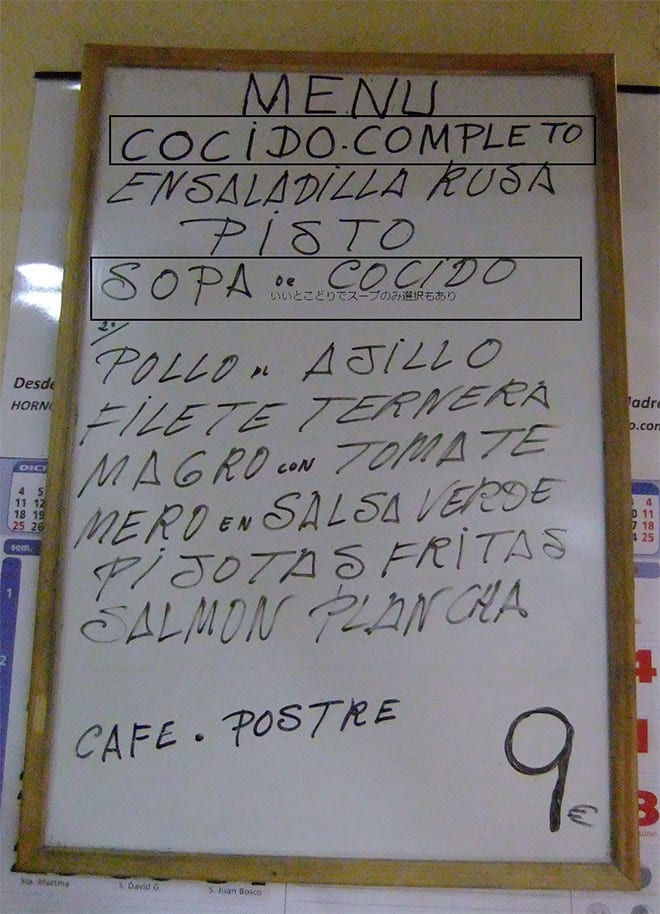 MENU
COCIDO.COMPLETO
ENSALADILLA RUSA
PISTO
SOPA DE COCIDO
いいとこどりでスープのみ選択もあり
2º/
POLLO AL AJILLO
FILETE TERNERA
MAGRO CON TOMATE
MERO EN SALSA VERDE
PIJOTAS FRITAS
SALMON PLANCHA
CAFE. POSTRE
9€
Desde
HORNO
DICI
4 5
11 12
18 19
25 26
sem.
1
2
4
11
18
4 25
4
1
8
Sta. Martina
S. David G.
S. Juan Bosco